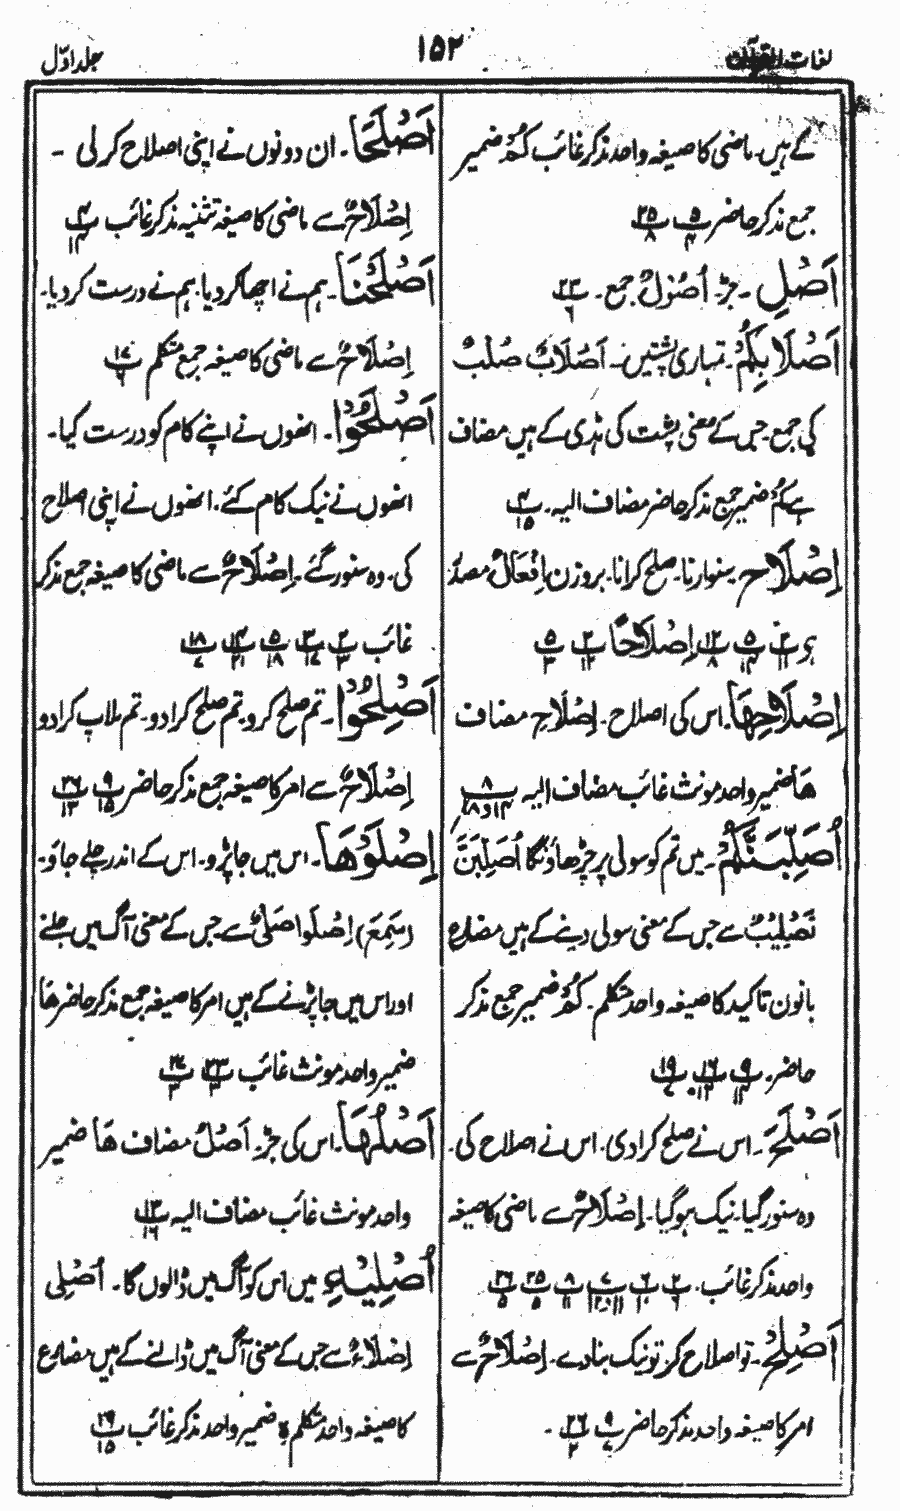 لغات القرآن
۱۵۲
جلد اوّل
کے ہیں۔ ماضی کا صیغہ واحد مذکر غائب کُمْ ضمیر
جمع مذکر حاضر پ ۵/۴ پ ۲۵/۸
اَصْلِ ۔ جڑ۔ اُصُوْلٌ جمع۔ پ ۲۳/۶
اَصْلَابِكُمْ ۔ تمہاری پشتیں۔ اَصْلَابٌ صُلْبٌ
کی جمع۔ جس کے معنی پشت کی ہڈی کے ہیں مضاف
ہے کُمْ ضمیر جمع مذکر حاضر مضاف الیہ۔ پ ۴/۱۵
اِصْلَاحٍ ۔ سنوارنا۔ صلح کرانا۔ بروزن اِفْعَالٌ مصدر
ہے پ ۲/۱۱ پ ۵/۱۴ پ ۱۲/۸ اِصْلَاحًا پ ۲/۱۲ پ ۵/۳
اِصْلَاحِهَا۔ اس کی اصلاح۔ اِصْلَاحِ مضاف
هَا ضمیر واحد مونث غائب مضاف الیہ پ ۸/۱۴و۱۸
اُصَلِّبَنَّكُمْ ۔ میں تم کو سولی پر چڑھاؤنگا اُصَلِّبَنَّ
تَصْلِیْبٌ سے جس کے معنی سولی دینے کے ہیں مضارع
بانون تاکید کا صیغہ واحد متکلم۔ کُمْ ضمیر جمع مذکر
حاضر۔ پ ۹/۴ پ ۱۶/۱۲ پ ۱۹/۷
اَصْلَحَ ۔ اس نے صلح کرادی۔ اس نے اصلاح کی۔
وہ سنور گیا۔ نیک ہو گیا۔ اِصْلَاحٌ سے ماضی کا صیغہ
واحد مذکر غائب۔ پ ۲/۶ پ ۶/۱۰ پ ۷/۱۱و۱۲ پ ۸/۱۱ پ ۲۵/۵ پ ۲۶/۵
اَصْلِحْ ۔ تو اصلاح کر۔ تو نیک بنا دے۔ اِصْلَاحٌ سے
امر کا صیغہ واحد مذکر حاضر پ ۹/۷ پ ۲۶/۲ ۔
اَصْلَحَا۔ ان دونوں نے اپنی اصلاح کر لی ۔
اِصْلَاحٌ سے ماضی کا صیغہ تثنیہ مذکر غائب پ ۴/۱۴
اَصْلَحْنَا۔ ہم نے اچھا کردیا۔ ہم نے درست کردیا۔
اِصْلَاحٌ سے ماضی کا صیغہ جمع متکلم پ ۱۷/۶
اَصْلَحُوْا۔ انھوں نے اپنے کام کو درست کیا۔
انھوں نے نیک کام کئے۔ انھوں نے اپنی اصلاح
کی۔ وہ سنور گئے۔ اِصْلَاحٌ سے ماضی کا صیغہ جمع مذکر
غائب پ ۲/۳ پ ۳/۱۷ پ ۵/۱۸ پ ۱۴/۲۱ پ ۱۸/۷
اَصْلِحُوْا۔ تم صلح کرو۔ تم صلح کرا دو۔ تم ملاپ کرا دو
اِصْلَاحٌ سے امر کا صیغہ جمع مذکر حاضر پ ۹/۱۵ پ ۲۶/۱۳
اِصْلَوْهَا۔ اس میں جا پڑو۔ اس کے اندر چلے جاؤ۔
(سَمِعَ) اِصْلَوا صَلْیٌ سے جس کے معنی آگ میں جلنے
اور اس میں جا پڑنے کے ہیں امر کا صیغہ جمع مذکر حاضر هَا
ضمیر واحد مونث غائب پ ۲۳/۳ پ ۲۷/۳
اَصْلُهَا۔ اس کی جڑ۔ اَصْلُ مضاف هَا ضمیر
واحد مونث غائب مضاف الیہ پ ۱۳/۱۶
اُصْلِیْهِ میں اس کو آگ میں ڈالوں گا۔ اُصْلِی
اِصْلَاءٌ سے جس کے معنی آگ میں ڈالنے کے ہیں مضارع
کا صیغہ واحد متکلم ہِ ضمیر واحد مذکر غائب پ ۲۹/۱۵